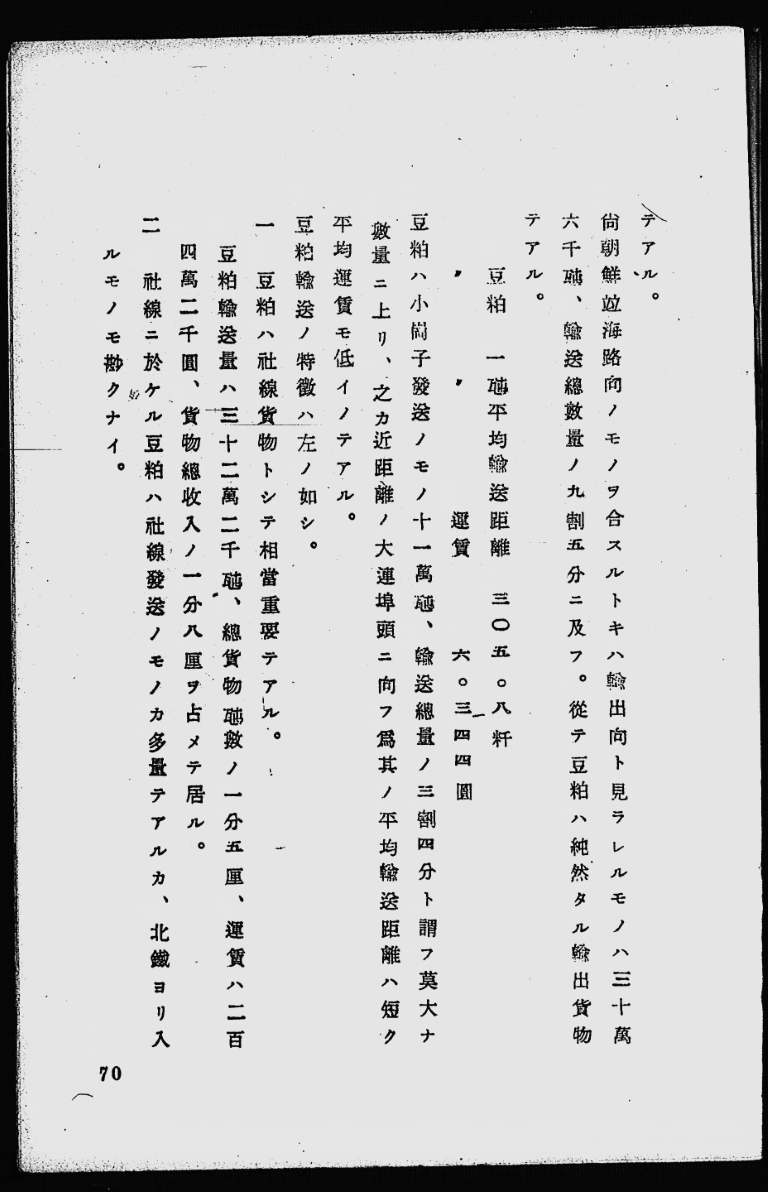 テアル。
尙朝鮮竝海路向ノモノヲ合スルトキハ輸出向ト見ラレルモノハ三十萬
六千瓲、輸送總數量ノ九割五分ニ及フ。從テ豆粕ハ純然タル輸出貨物
テアル。
豆粕　一瓲平均輸送距離　三〇五。八粁
〃　〃　運賃　六。三四四圓
豆粕ハ小崗子發送ノモノ十一萬瓲、輸送總量ノ三割四分ト謂フ莫大ナ
數量ニ上リ、之カ近距離ノ大連埠頭ニ向フ爲其ノ平均輸送距離ハ短ク
平均運賃モ低イノテアル。
豆粕輸送ノ特徵ハ左ノ如シ。
一　豆粕ハ社線貨物トシテ相當重要テアル。
豆粕輸送量ハ三十二萬二千瓲、總貨物瓲數ノ一分五厘、運賃ハ二百
四萬二千圓、貨物總收入ノ一分八厘ヲ占メテ居ル。
二　社線ニ於ケル豆粕ハ社線發送ノモノカ多量テアルカ、北鐵ヨリ入
ルモノモ尠クナイ。
70